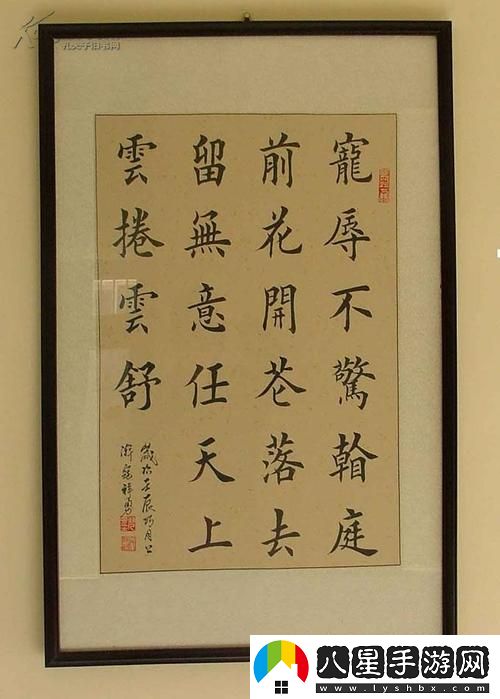 寵辱不驚看庭
前花開芲落去
留無意任天上
雲捲雲舒
歲次壬辰月上
祥勇
孔夫子旧书网
八星手游网
www.lyshbx.com